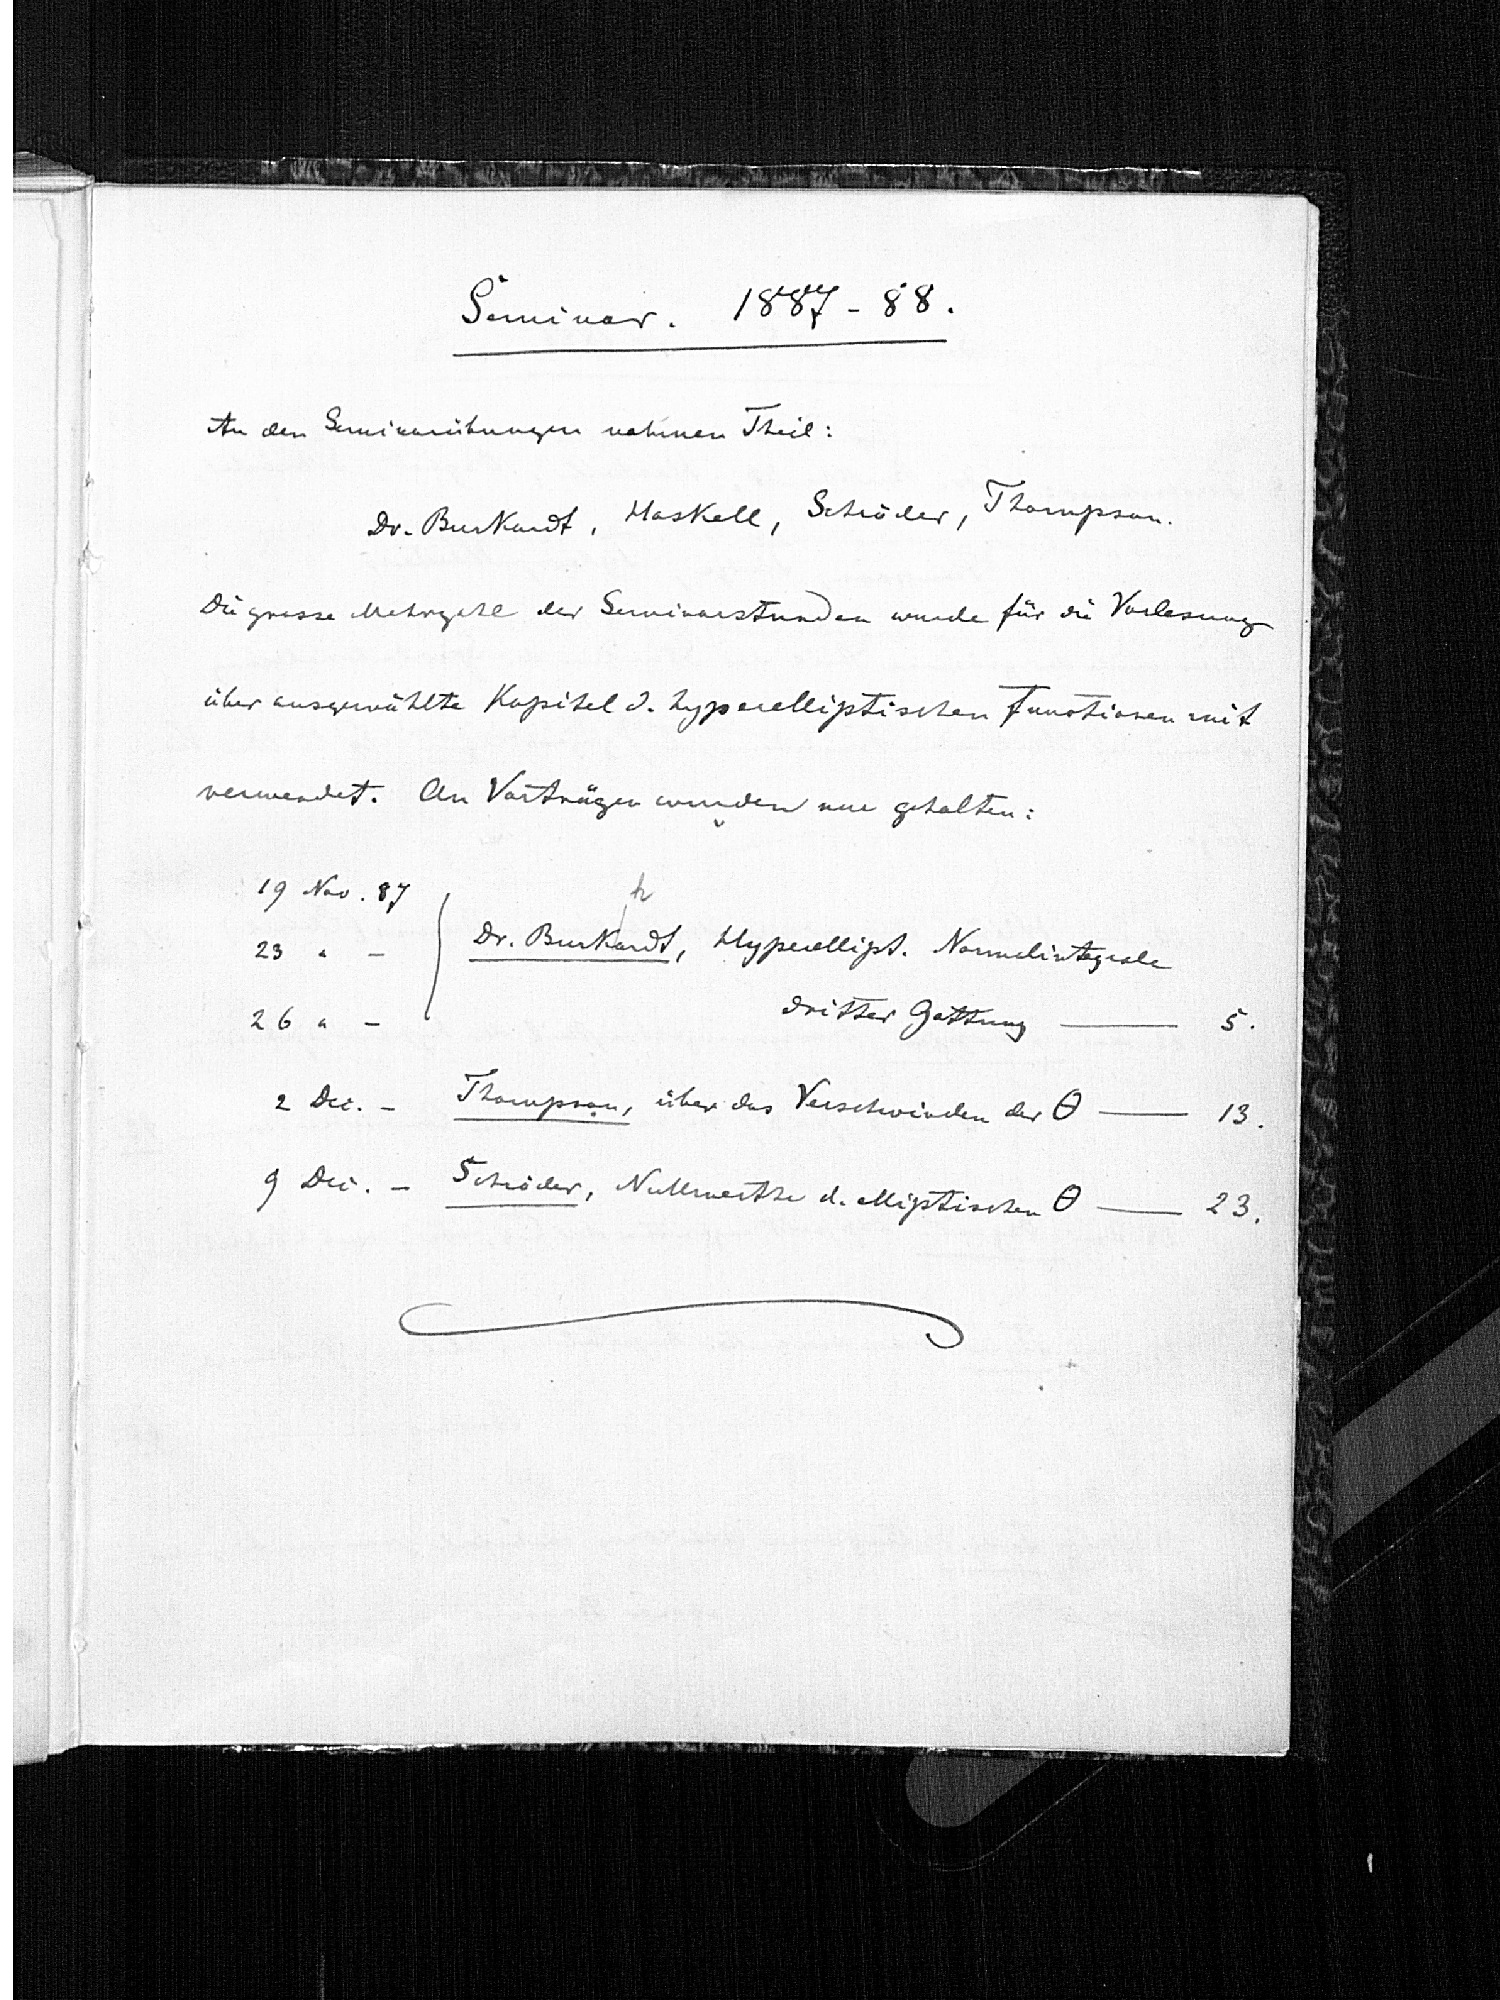 Seminar. 1887-88.
An den Seminarübungen nahmen Theil:
Dr. Burkardt, Haskell, Schröder, Thompson.
Die grosse Mehrzahl der Seminarstunden wurde für die Vorlesung
über ausgewählte Kapitel d. hyperelliptischen Functionen mit
verwendet. An Vorträgen wurden nur gehalten:
19 Nov. 87
h
23 " - Dr. Burkardt, Hyperellipt. Normalintegrale
26 " - dritter Gattung — 5.
2 Dec. - Thompson, über das Verschwinden der θ — 13.
9 Dec. - Schröder, Nullwerthe d. elliptischen θ — 23.